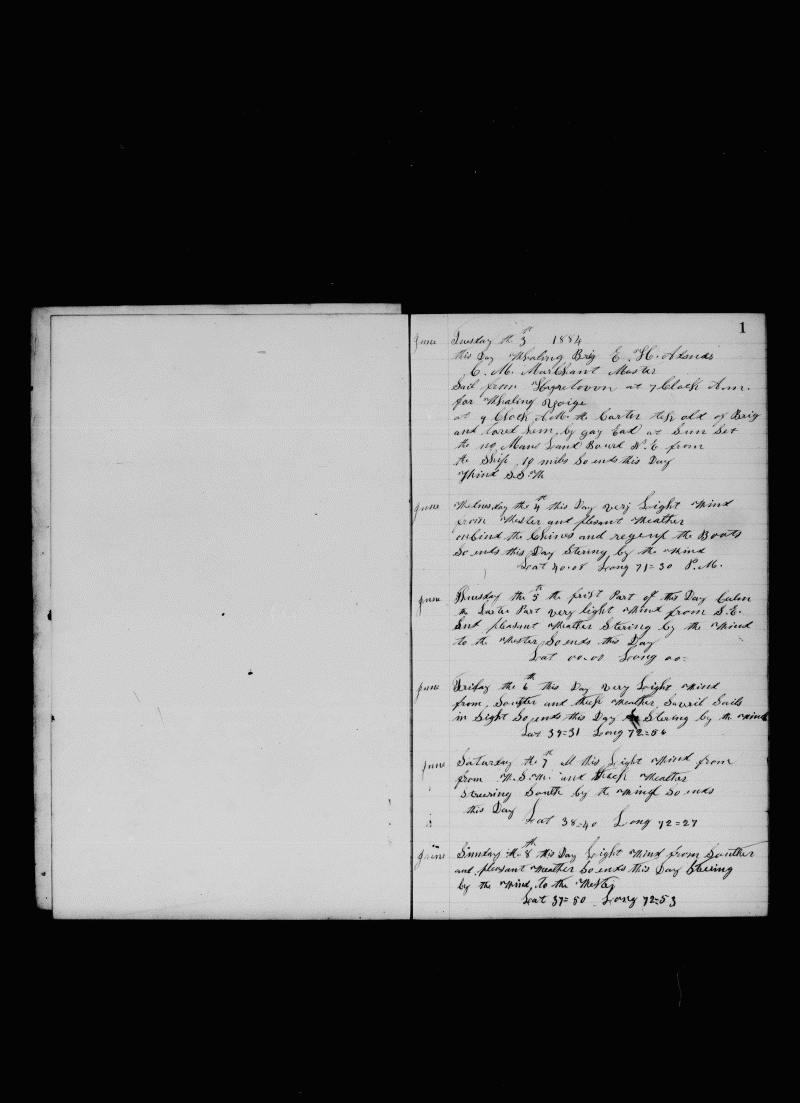 1
June Tuesday the 3th 1884
this Day Whaling Brig E. H. Adams
C. M. Marchant Master
Sail from at 7 Clock A.m.
for Whaling
at 9 Clock A.M. the of Brig
and by gay Ead at Sun Set
the no Mans Land Beard N. E from
the Ship 10 mils So ends this Day
Wind S.S.W
June Wednesday the 4th this Day very Light Wind
from Wester and plesant Weather
the and the Boats
So ends this Day Stering by the Wind
Lat 40.08 Long 71=30 P.M.
June Thursday the 5th the first Part of this Day Calm
the Later Part very light Wind from S.E.
and plesant Weather Stering by the Wind
to the Wester So ends this Day
Lat 00.00 Long 00=
June Friday the 6th this Day very Light Wind
from Souther and thick Weather, Savril Sails
in Sight So ends this Day Stering by the Wind
Lat 39=31 Long 72=56
June Saturday the 7th all this Light Wind from
from W.S.W. and thick Weather
Steering South by the Wind So ends
this Day
Lat 38=40 Long 72=27
June Sunday the 8th this Day Light Wind from Souther
and plesant Weather So ends this Day Steering
by the Wind to the Wester
Lat 37=50 Long 72=53